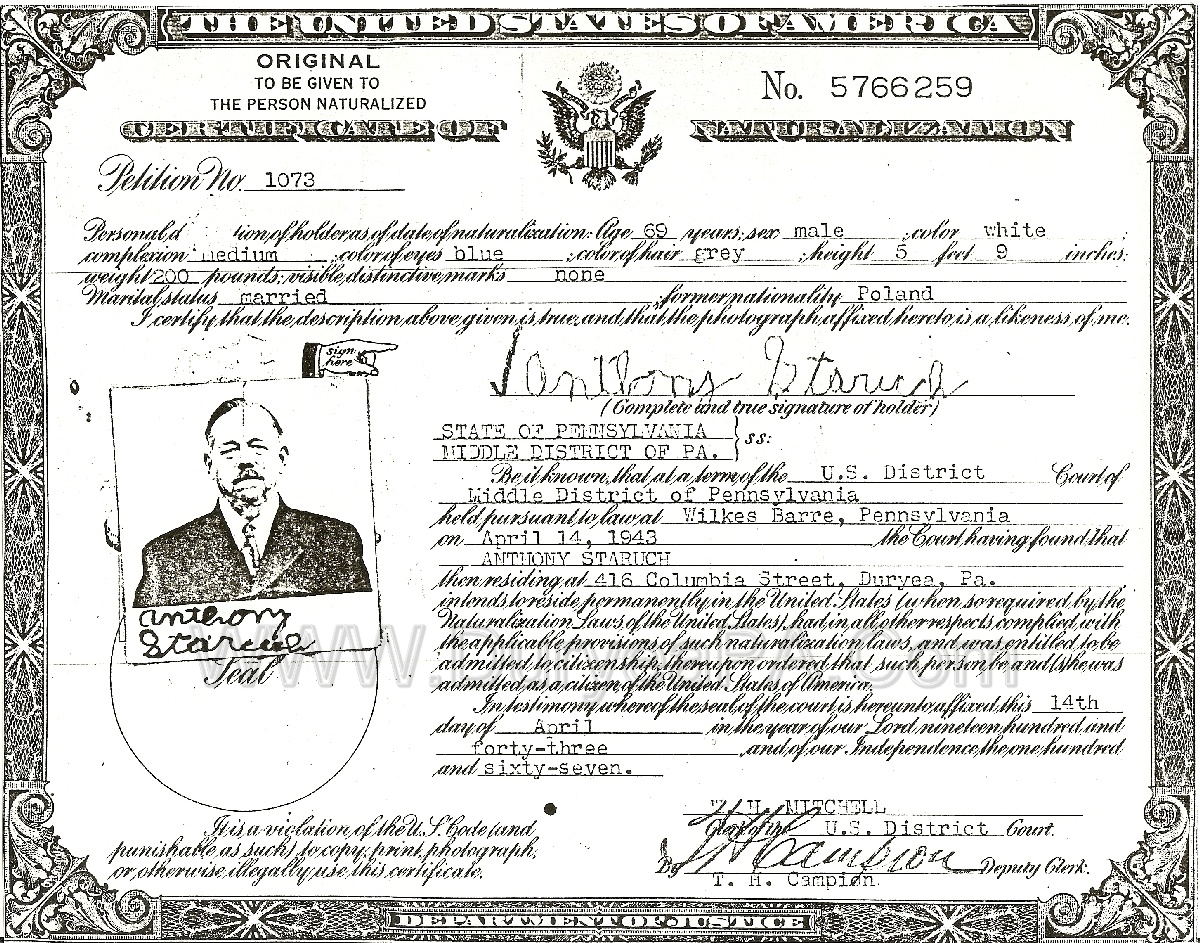 THE UNITED STATES OF AMERICA
ORIGINAL
TO BE GIVEN TO
THE PERSON NATURALIZED
No. 5766259
CERTIFICATE OF NATURALIZATION
Petition No. 1073
Personal d tion of holder as of date of naturalization: Age 69 years; sex male ; color white ;
complexion medium ; color of eyes blue ; color of hair grey ; height 5 feet 9 inches;
weight 200 pounds; visible distinctive marks none
Marital status married ; former nationality Poland
I certify that the description above given is true, and that the photograph affixed hereto is a likeness of me.
sign here
Anthony Staruch
(Complete and true signature of holder)
STATE OF PENNSYLVANIA
MIDDLE DISTRICT OF PA. } ss:
Be it known, that at a term of the U.S. District Court of
Middle District of Pennsylvania
held pursuant to law at Wilkes Barre, Pennsylvania
on April 14, 1943 the Court having found that
ANTHONY STARUCH
then residing at 416 Columbia Street, Duryea, Pa.
intends to reside permanently in the United States (when so required by the
Naturalization Laws of the United States), had in all other respects complied with
the applicable provisions of such naturalization laws, and was entitled to be
admitted to citizenship, thereupon ordered that such person be and (s)he was
admitted as a citizen of the United States of America.
In testimony whereof the seal of the court is hereunto affixed this 14th
day of April in the year of our Lord nineteen hundred and
forty-three and of our Independence the one hundred
and sixty-seven.
Anthony
Staruch
Seal
It is a violation of the U.S. Code (and
punishable as such) to copy, print, photograph,
or otherwise illegally use this certificate.
H. MITCHELL
Clerk of the U.S. District Court.
By T H Campion Deputy Clerk.
T. H. Campion
DEPARTMENT OF JUSTICE